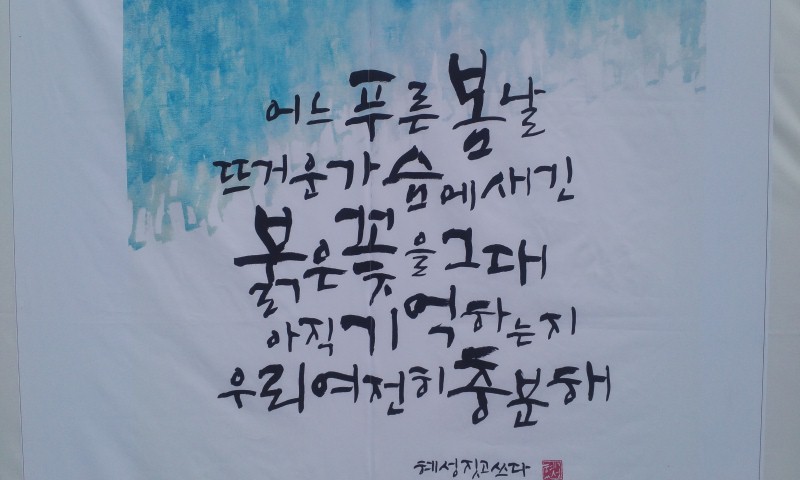 어느 푸른 봄날
뜨거운 가슴에 새긴
붉은 꽃을 그대
아직 기억하는지
우리 여전히 충분해
혜성 짓고 쓰다